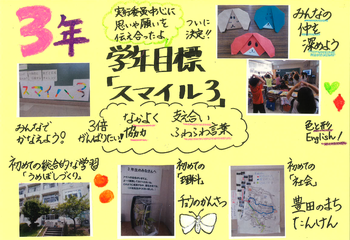 3年
実行委員中心に
思いや願いを
伝え合ったよ。
ついに
決定!!
みんなの
仲を
深めよう
学年目標
「スマイル3」
スマイル3
みんなで
かなえよう。
3倍
がんばりたい!!
なかよく 支え合い
協力 ふわふわ言葉
色と形
English!
初めての総合的な学習
「うめぼしづくり」
初めての
「理科」
チョウのかんさつ
初めての
「社会」
豊田のまち
たんけん